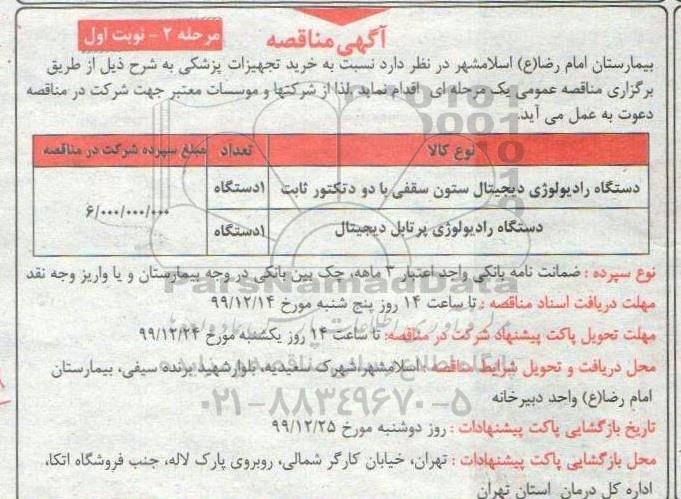 آگهی مناقصه
مرحله ۲ - نوبت اول
بیمارستان امام رضا(ع) اسلامشهر در نظر دارد نسبت به خرید تجهیزات پزشکی به شرح ذیل از طریق
برگزاری مناقصه عمومی یک مرحله ای اقدام نماید .لذا از شرکتها و موسسات معتبر جهت شرکت در مناقصه
دعوت به عمل می آید.
نوع کالا تعداد مبلغ سپرده شرکت در مناقصه
دستگاه رادیولوژی دیجیتال ستون سقفی با دو دتکتور ثابت ۱دستگاه
۶/۰۰۰/۰۰۰/۰۰۰
دستگاه رادیولوژی پرتابل دیجیتال ۱دستگاه
نوع سپرده : ضمانت نامه بانکی واجد اعتبار ۳ ماهه، چک بین بانکی در وجه بیمارستان و یا واریز وجه نقد
مهلت دریافت اسناد مناقصه : تا ساعت ۱۴ روز پنج شنبه مورخ ۹۹/۱۲/۱۴
مهلت تحویل پاکت پیشنهاد شرکت در مناقصه: تا ساعت ۱۴ روز یکشنبه مورخ ۹۹/۱۲/۲۴
محل دریافت و تحویل شرایط مناقصه : اسلامشهر، شهرک سعیدیه، بلوار شهید برنده سیفی، بیمارستان
امام رضا(ع) واحد دبیرخانه
تاریخ بازگشایی پاکت پیشنهادات : روز دوشنبه مورخ ۹۹/۱۲/۲۵
محل بازگشایی پاکت پیشنهادات : تهران، خیابان کارگر شمالی، روبروی پارک لاله، جنب فروشگاه اتکا،
اداره کل درمان استان تهران
ParsNamadData
۰۲۱-۸۸۳۴۹۶۷۰-۵